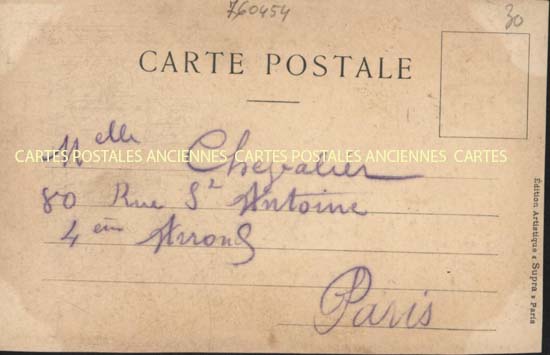 760454
30
CARTE POSTALE
Melle Chevalier
CARTES POSTALES ANCIENNES CARTES POSTALES ANCIENNES CARTES
80 Rue St Antoine
4 em Arrond
Paris
Édition Artistique « Supra » Paris